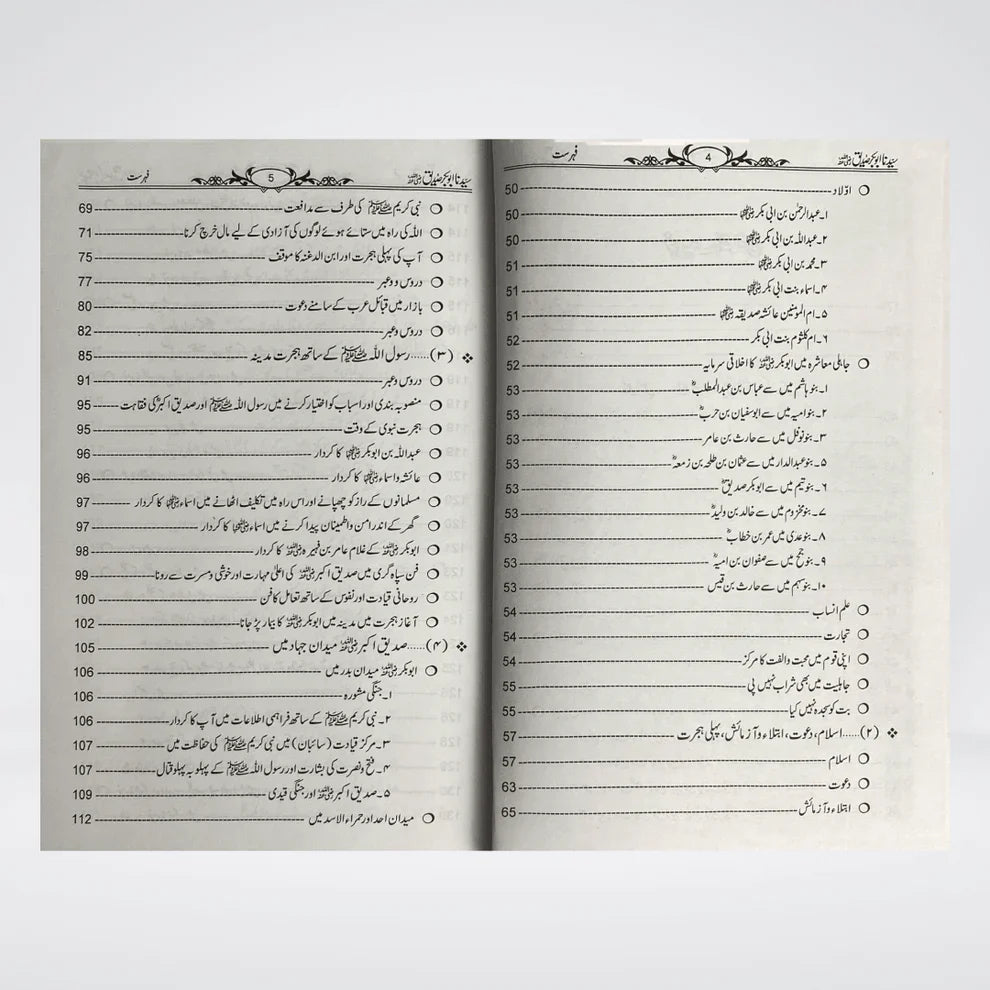 سیّدنا ابوبکر صدیق رضی اللہ عنہ 4 فہرست
○ اوّلاد 50
۱۔ عبدالرحمٰن بن ابی بکر رضی اللہ عنہما 50
۲۔ عبداللہ بن ابی بکر رضی اللہ عنہما 50
۳۔ محمد بن ابی بکر رضی اللہ عنہما 51
۴۔ اسماء بنت ابی بکر رضی اللہ عنہما 51
۵۔ ام المومنین عائشہ صدیقہ رضی اللہ عنہا 51
۶۔ ام کلثوم بنت ابی بکر 52
○ جاہلی معاشرہ میں ابوبکر رضی اللہ عنہ کا اخلاقی سرمایہ 52
۱۔ بنو ہاشم میں سے عباس بن عبدالمطلبؓ 53
۲۔ بنو امیہ میں سے ابوسفیان بن حربؓ 53
۳۔ بنو نوفل میں سے حارث بن عامر 53
۵۔ بنو عبدالدار میں سے عثمان بن طلحہ بن زمعہؓ 53
۶۔ بنو تیم میں سے ابوبکر صدیقؓ 53
۷۔ بنو مخزوم میں سے خالد بن ولیدؓ 53
۸۔ بنو عدی میں عمر بن خطابؓ 53
۹۔ بنو جمح میں سے صفوان بن امیہؓ 53
۱۰۔ بنو سہم میں سے حارث بن قیس 53
○ علم انساب 54
○ تجارت 54
○ اپنی قوم میں محبت و الفت کا مرکز 54
○ جاہلیت میں بھی شراب نہیں پی 55
○ بت کو سجدہ نہیں کیا 55
❖ (۲)...... اسلام، دعوت، ابتلاء و آزمائش، پہلی ہجرت 57
○ اسلام 57
○ دعوت 63
○ ابتلاء و آزمائش 65
سیّدنا ابوبکر صدیق رضی اللہ عنہ 5 فہرست
○ نبی کریم ﷺ کی طرف سے مدافعت 69
○ اللہ کی راہ میں ستائے ہوئے لوگوں کی آزادی کے لیے مال خرچ کرنا 71
○ آپ کی پہلی ہجرت اور ابن الدغنہ کا موقف 75
○ دروس و عبر 77
○ بازار میں قبائل عرب کے سامنے دعوت 80
○ دروس و عبر 82
❖ (۳)...... رسول اللہ ﷺ کے ساتھ ہجرت مدینہ 85
○ دروس و عبر 91
○ منصوبہ بندی اور اسباب کو اختیار کرنے میں رسول اللہ ﷺ اور صدیق اکبرؓ کی فقاہت 95
○ ہجرت نبوی کے وقت 95
○ عبداللہ بن ابوبکر رضی اللہ عنہما کا کردار 96
○ عائشہ و اسماء رضی اللہ عنہما کا کردار 96
○ مسلمانوں کے راز کو چھپانے اور اس راہ میں تکلیف اٹھانے میں اسماء رضی اللہ عنہا کا کردار 97
○ گھر کے اندر امن و اطمینان پیدا کرنے میں اسماء رضی اللہ عنہا کا کردار 97
○ ابوبکر رضی اللہ عنہ کے غلام عامر بن فہیرہ رضی اللہ عنہ کا کردار 98
○ فن سپاہ گری میں صدیق اکبر رضی اللہ عنہ کی اعلیٰ مہارت اور خوشی و مسرت سے رونا 99
○ روحانی قیادت اور نفوس کے ساتھ تعامل کا فن 100
○ آغاز ہجرت میں مدینہ میں ابوبکر رضی اللہ عنہ کا بیمار پڑ جانا 102
❖ (۴)...... صدیق اکبر رضی اللہ عنہ میدان جہاد میں 105
○ ابوبکر رضی اللہ عنہ میدان بدر میں 106
۱۔ جنگی مشورہ 106
۲۔ نبی کریم ﷺ کے ساتھ فراہمی اطلاعات میں آپ کا کردار 106
۳۔ مرکز قیادت (سائبان) میں نبی کریم ﷺ کی حفاظت میں 107
۴۔ فتح و نصرت کی بشارت اور رسول اللہ ﷺ کے پہلو بہ پہلو قتال 107
۵۔ صدیق اکبر رضی اللہ عنہ اور جنگی قیدی 109
○ میدان احد اور حمراء الاسد میں 112